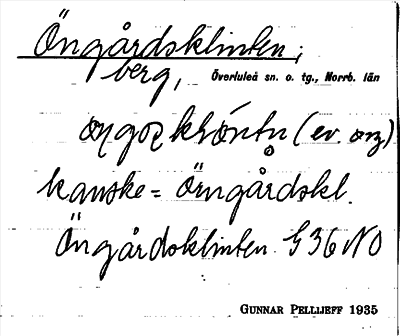 Öngårdsklinten,
berg, Överluleå sn. o. tg., Norrb. län
(ev. ong)
kanske = Örngårdskl.
Öngårdsklinten G 36 NO
GUNNAR PELLIJEFF 1935